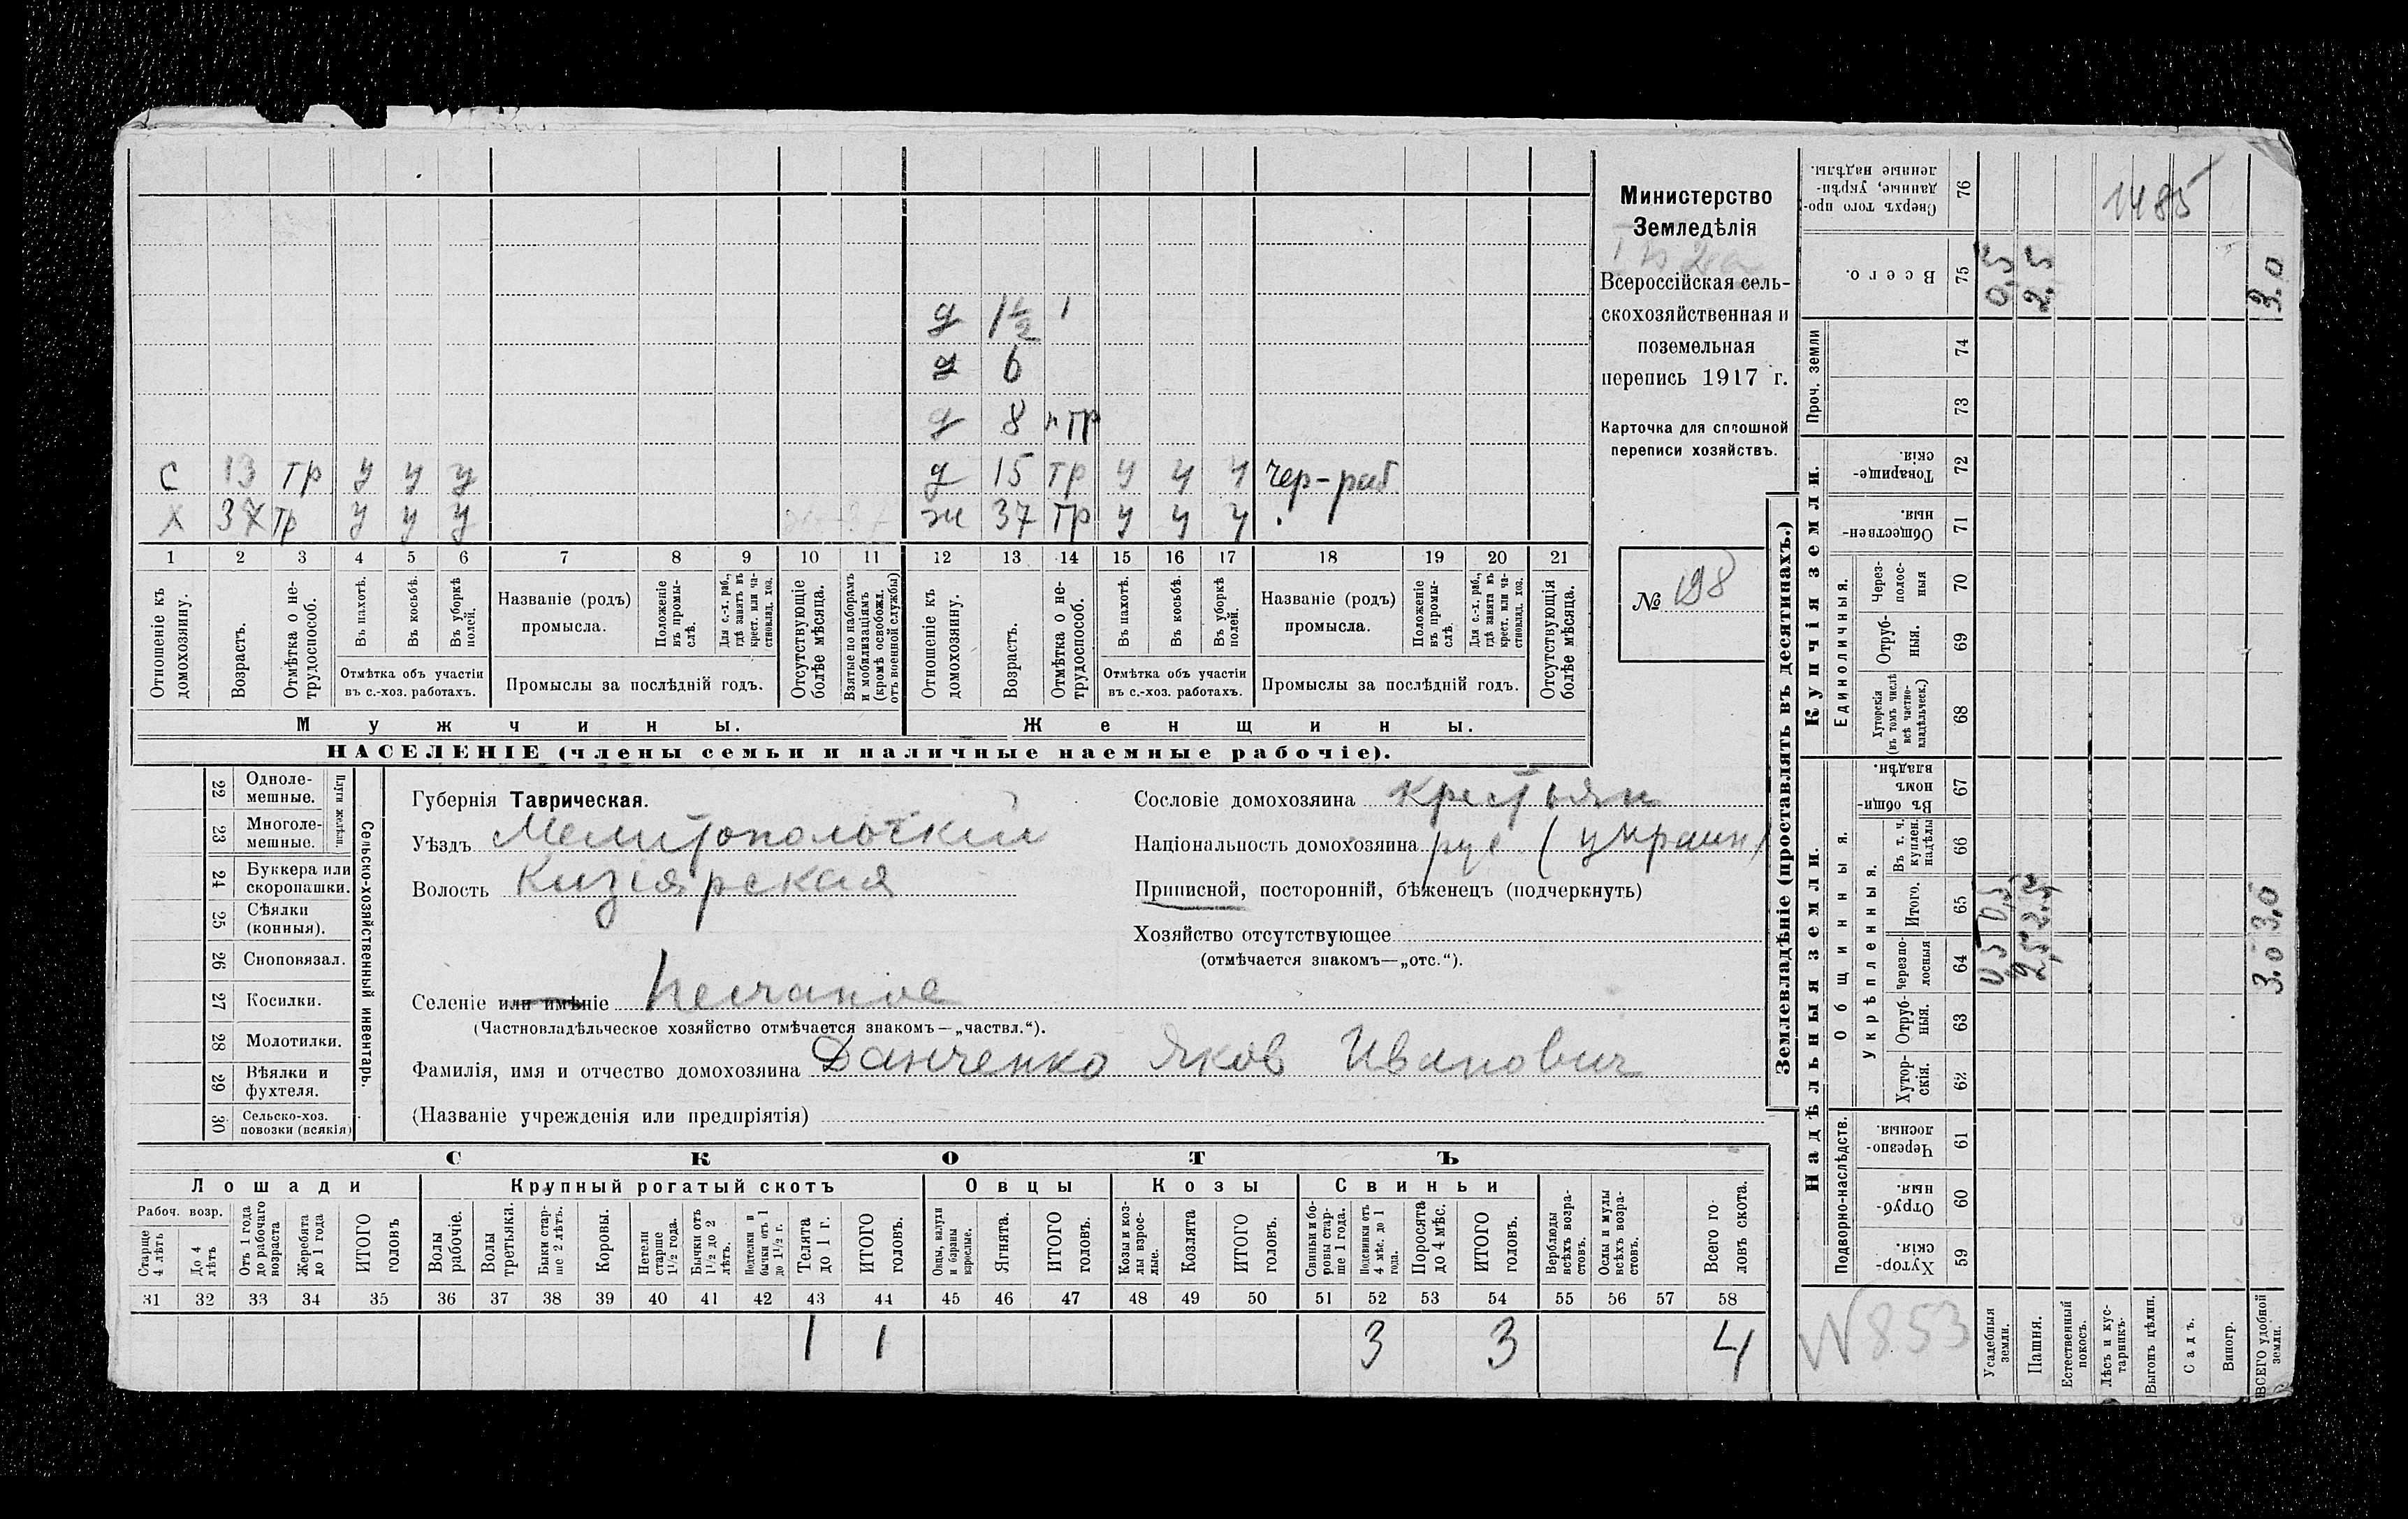 Министерство
Земледѣлія
Всероссійская сель-
скохозяйственная и
поземельная
перепись 1917 г.
Карточка для сплошной
переписи хозяйствъ.
№ 198
д 1½ 1
д 6
д 8 н тр
с 13 тр у у у д 15 тр у у у чер-раб
х 37 тр у у у ж 37 тр у у у
1 2 3 4 5 6 7 8 9 10 11 12 13 14 15 16 17 18 19 20 21
Отношеніе къ домохозяину.
Возрастъ.
Отмѣтка о не-трудоспособ.
Въ пахотѣ.
Въ косьбѣ.
Въ уборкѣ полей.
Отмѣтка объ участіи въ с.-хоз. работахъ.
Названіе (родъ) промысла.
Положеніе въ промы-слѣ.
Для с.-х. раб., гдѣ занятъ въ крест. или ча-стновлад. хоз.
Промыслы за послѣдній годъ.
Отсутствующіе болѣе мѣсяца.
Взятые по наборамъ и мобилизаціямъ (кромѣ освобожд. отъ военной службы)
Отношеніе къ домохозяину.
Возрастъ.
Отмѣтка о не-трудоспособ.
Въ пахотѣ.
Въ косьбѣ.
Въ уборкѣ полей.
Отмѣтка объ участіи въ с.-хоз. работахъ.
Названіе (родъ) промысла.
Положеніе въ промы-слѣ.
Для с.-х. раб., гдѣ занята въ крест. или ча-стновлад. хоз.
Промыслы за послѣдній годъ.
Отсутствующія болѣе мѣсяца.
Мужчины. Женщины.
НАСЕЛЕНІЕ (члены семьи и наличные наемные рабочіе).
22 Одноле-мешные.
23 Многоле-мешные.
Плуги желѣзн.
24 Буккера или скоропашки.
25 Сѣялки (конныя).
26 Сноповязал.
27 Косилки.
28 Молотилки.
29 Вѣялки и фухтеля.
30 Сельско-хоз. повозки (всякія)
Сельско-хозяйственный инвентарь.
Губернія Таврическая.
Уѣздъ Мелитопольскій
Волость Кизіярская
Селеніе или имѣніе Песчаное
(Частновладѣльческое хозяйство отмѣчается знакомъ—„частвл.“).
Фамилія, имя и отчество домохозяина Данченко Яков Иванович
(Названіе учрежденія или предпріятія)
Сословіе домохозяина крестьян
Національность домохозяина рус (украин)
Приписной, посторонній, бѣженецъ (подчеркнуть)
Хозяйство отсутствующее
(отмѣчается знакомъ—„отс.“).
СКОТЪ
Лошади Крупный рогатый скотъ Овцы Козы Свиньи
Рабоч. возр.
Старше 4 лѣтъ
До 4 лѣтъ
Отъ 1 года до рабочаго возраста
Жеребята до 1 года
ИТОГО головъ
Волы рабочіе.
Волы третьяки.
Быки стар-ше 2 лѣтъ.
Коровы.
Нетели старше 1½ года.
Бычки отъ 1½ до 2 лѣтъ.
Подтелки и бычки отъ 1 до 1½ г.
Телята до 1 г.
ИТОГО головъ.
Овцы, валухи и бараны взрослые.
Ягнята.
ИТОГО головъ.
Козы и коз-лы взрос-лые.
Козлята
ИТОГО головъ.
Свиньи и бо-ровы стар-ше 1 года.
Подсвинки отъ 4 мѣс. до 1 года.
Поросята до 4 мѣс.
ИТОГО головъ.
Верблюды всѣхъ возра-стовъ.
Ослы и мулы всѣхъ возра-стовъ.
Всего го-ловъ скота.
31 32 33 34 35 36 37 38 39 40 41 42 43 44 45 46 47 48 49 50 51 52 53 54 55 56 57 58
1 1 3 3 4
Землевладѣніе (проставлять въ десятинахъ.)
Надѣльныя земли. Купчія земли. Проч. земли
Подворно-наслѣдств. Общинныя. Укрѣпленныя. Единоличныя.
Хутор-скія. 59
Отруб-ныя. 60
Черезпо-лосныя. 61
Хутор-скія. 62
Отруб-ныя. 63
Черезпо-лосныя 64 0,5 2,5 3.0
Итого. 65 0,5 2.5 3,0
Въ т. ч. куплен. надѣлы 66
Въ общи-номъ владѣн. 67
Хуторскія (въ томъ числѣ всѣ частно-владѣльческ.) 68
Отруб-ныя. 69
Через-полос-ныя 70
Обществен-ныя. 71
Товарище-скія. 72
73
74
Всего. 75 0,5 2,5 3.0
Сверхъ того про-данные, укрѣп-ленные надѣлы. 76
1485
N 853
Усадебныя земли.
Пашня.
Естественный покосъ.
Лѣсъ и кус-тарникъ.
Выгонъ цѣлин.
Садъ.
Виногр.
ВСЕГО удобной земли.